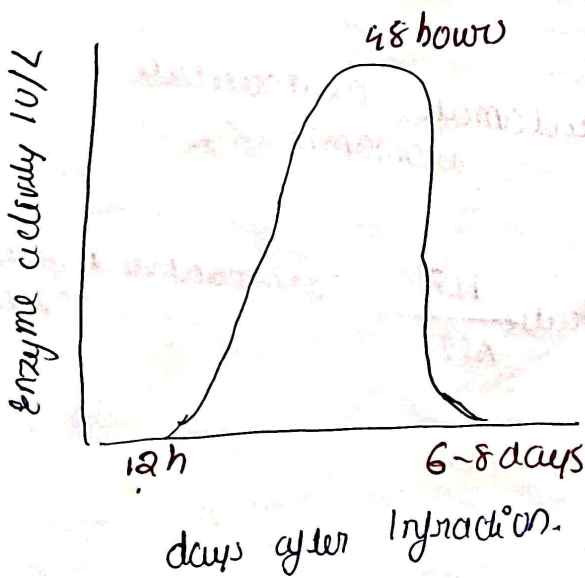 48 hours
Enzyme activity IU/L
12h
6-8 days
days after Infraction.